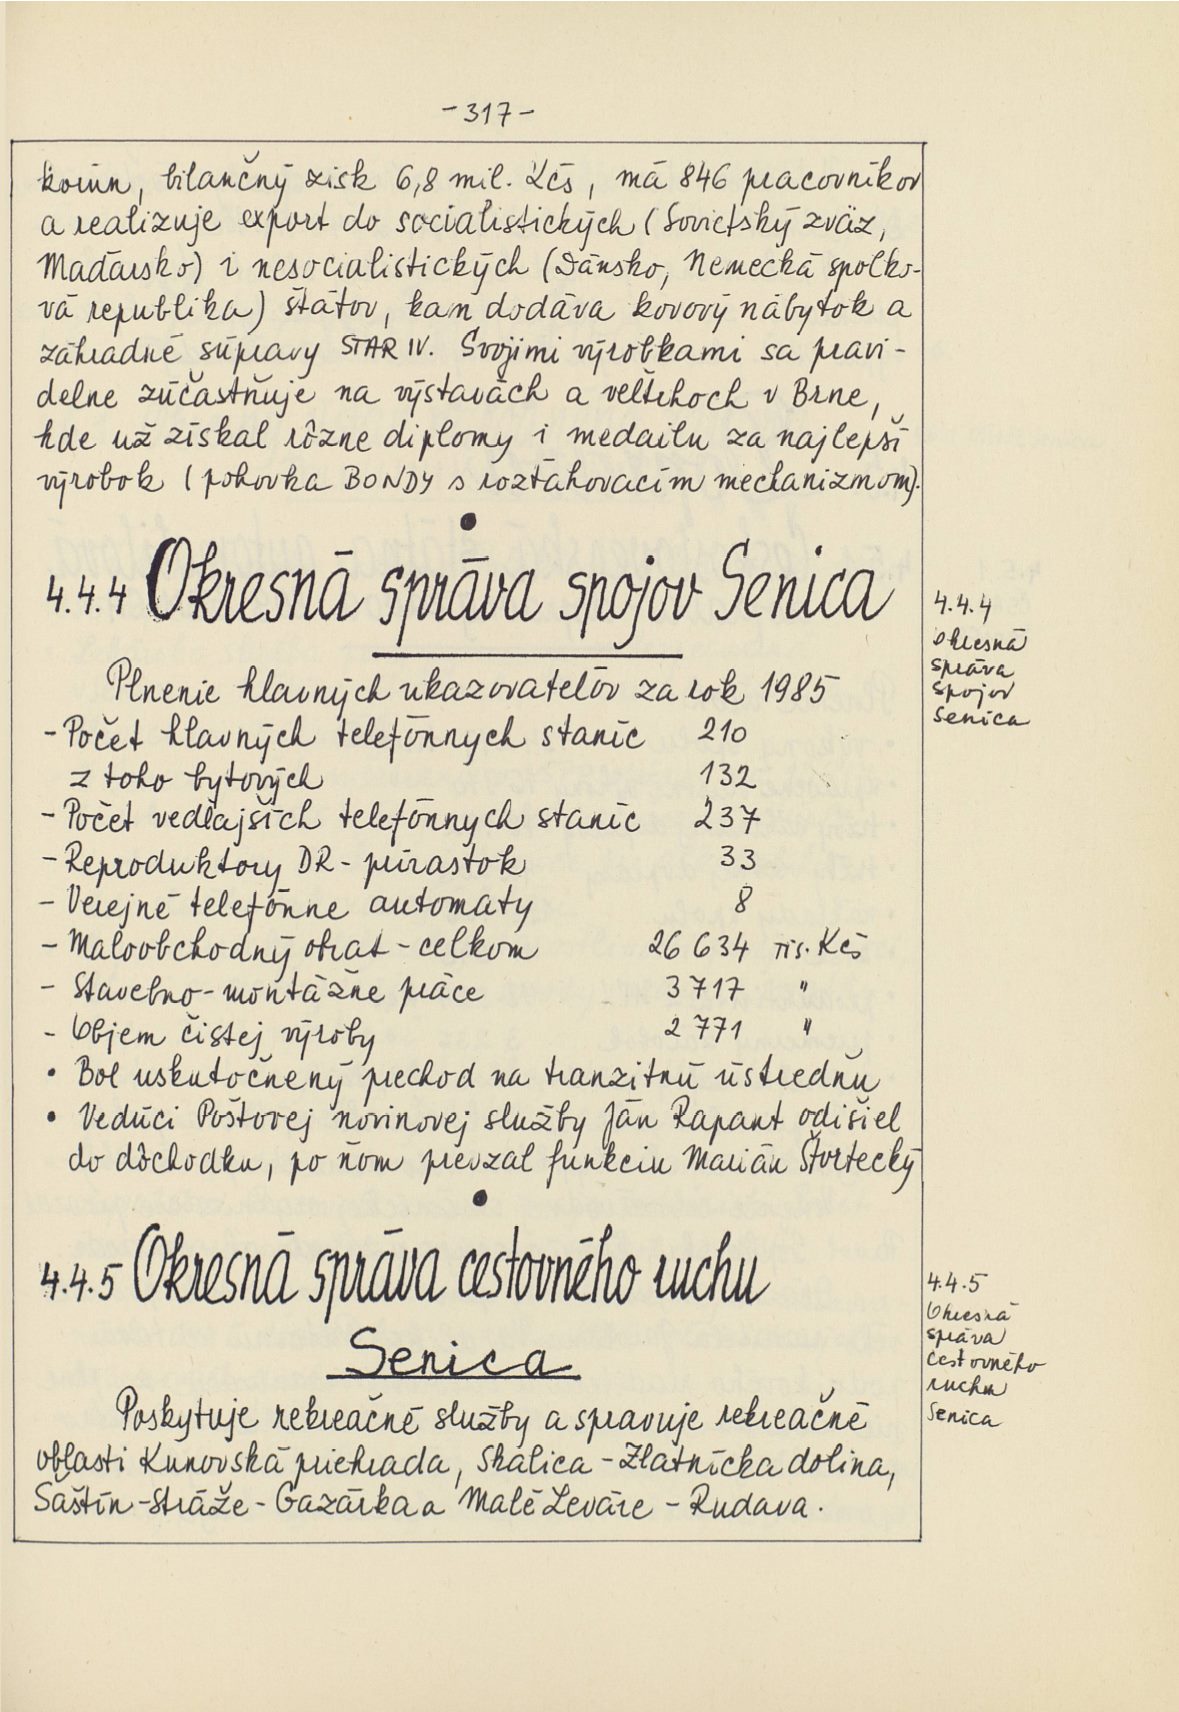 -317-
korún, bilančný zisk 6,8 mil. Kčs, má 846 pracovníkov
a realizuje export do socialistických (Sovietský zväz,
Maďarsko) i nesocialistických (Dánsko, Nemecká spolko-
vá republika) štátov, kam dodáva kovový nábytok a
záhradné súpravy STAR IV. Svojimi výrobkami sa pravi-
delne zúčastňuje na výstavách a veltrhoch v Brne,
kde už získal rôzne diplomy i medailu za najlepší
výrobok (pohovka BONDY s rozťahovacím mechanizmom).
4.4.4 Okresná správa spojov Senica
4.4.4
Okresná
správa
spojov
Senica
Plnenie hlavných ukazovateľov za rok 1985
- Počet hlavných telefónnych staníc 210
z toho bytových 132
- Počet vedľajších telefónnych staníc 237
- Reproduktory DR - prírastok 33
- Verejné telefónne automaty 8
- Maloobchodný obrat - celkom 26 634 tis. Kčs
- Stavebno-montážne práce 3 717 "
- Objem čistej výroby 2 771 "
• Bol uskutočnený prechod na tranzitnú ústredňu
• Vedúci Poštovej novinovej služby Ján Rapant odišiel
do dôchodku, po ňom prevzal funkciu Marián Švrtecký
4.4.5 Okresná správa cestovného ruchu
Senica
4.4.5
Okresná
správa
cestovného
ruchu
Senica
Poskytuje rekreačné služby a spravuje rekreačné
oblasti Kunovská priehrada, Skalica - Zlatnícka dolina,
Šaštín-Stráže - Gazárka a Malé Leváre - Rudava.